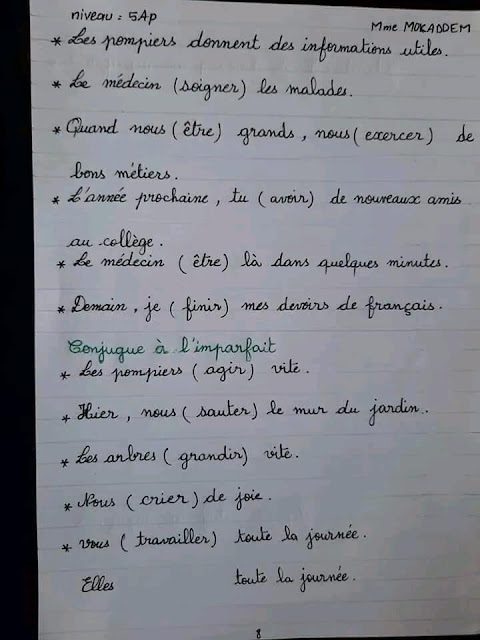 niveau : 5Ap
Mme MOKADDEM
* Les pompiers donnent des informations utiles.
* Le médecin (soigner) les malades.
* Quand nous (être) grands, nous (exercer) de
bons métiers.
* L'année prochaine, tu (avoir) de nouveaux amis
au collège.
* Le médecin (être) là dans quelques minutes.
* Demain, je (finir) mes devoirs de français.
Conjugue à l'imparfait
* Les pompiers (agir) vite.
* Hier, nous (sauter) le mur du jardin.
* Les arbres (grandir) vite.
* Nous (crier) de joie.
* Vous (travailler) toute la journée.
Elles toute la journée.
8